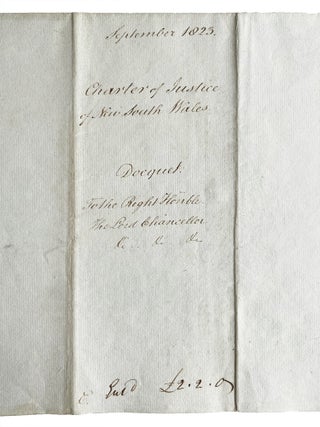 September 1823.
Charter of Justice
of New South Wales
Docquet.
To the Right Honble
The Lord Chancellor
&c. &c. &c.
£2.2.0